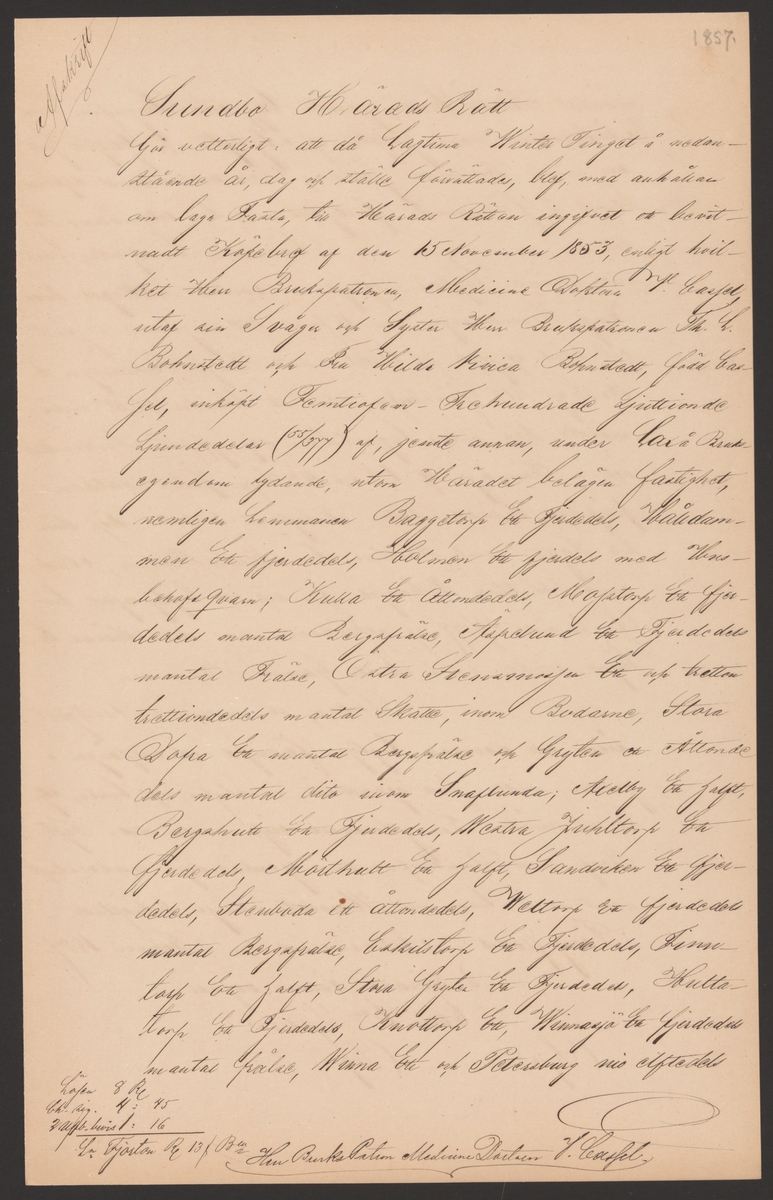 1857.
Afskrift
Sundbo Härads Rätt
Gör vetterligt: att då Lagtima Winter Tinget å nedan-
stående år, dag och ställe förrättades, blef, med anhållan
om laga Fasta, till Härads Rätten ingifvet ett bevitt-
nadt Köpebref af den 15 November 1853, enligt hvil-
ket Herr Brukspatronen, Medicine Doktorn V. Cassel,
utaf sin Svåger och Syster Herr Brukspatronen Th. L.
Bohnstedt och Fru Hilda Vivica Bohnstedt, född Cas-
sel, inköpt Femtiofem-Trehundrade Sjuttionde
Sjundedelar (55/377) af, jemte annan, under Laxå Bruks-
egendom lydande, utom Häradet belägen fastighet,
nemligen hemmanen Baggetorp Ett Fjerdedels, Håldam-
men Ett fjerdedels, Holmen Ett fjerdels med Hus-
behofs qvarn; Kulla Ett Åttondedels, Mostorp Ett fjer-
dedels mantal Bergsfrälse, Äspelund Ett Fjerdedels
mantal Frälse, Östra Stensmossen Ett och tretton
trettiondedels mantal Skatte, inom Bodarne, Stora
Dofra Ett mantal Bergsfrälse och Gryten ett Åttonde
dels mantal dito inom Snaflunda; Aielby Ett halft,
Bergshult Ett Fjerdedels, Westra Juhltorp Ett
fjerdedels, Mörthult Ett halft, Sandviken Ett fjer-
dedels, Stenboda ett åttondedels, Weltorp Ett fjerdedels
mantal Bergsfrälse, Eskilstorp Ett Fjerdedels, Finn-
torp Ett halft, Stora Gryten Ett Fjerdedels, Hulta-
torp Ett Fjerdedels, Knottorp Ett, Winnasjö Ett fjerdedels
mantal frälse, Winna Ett och Petersburg nio elftedels
Lösen 8 R
Ch. sig. 4: 45
bevis 1: 16
Er Fjorton R 13 f Bco
Herr Bruks Patron Medicine Doctoren V. Cassel